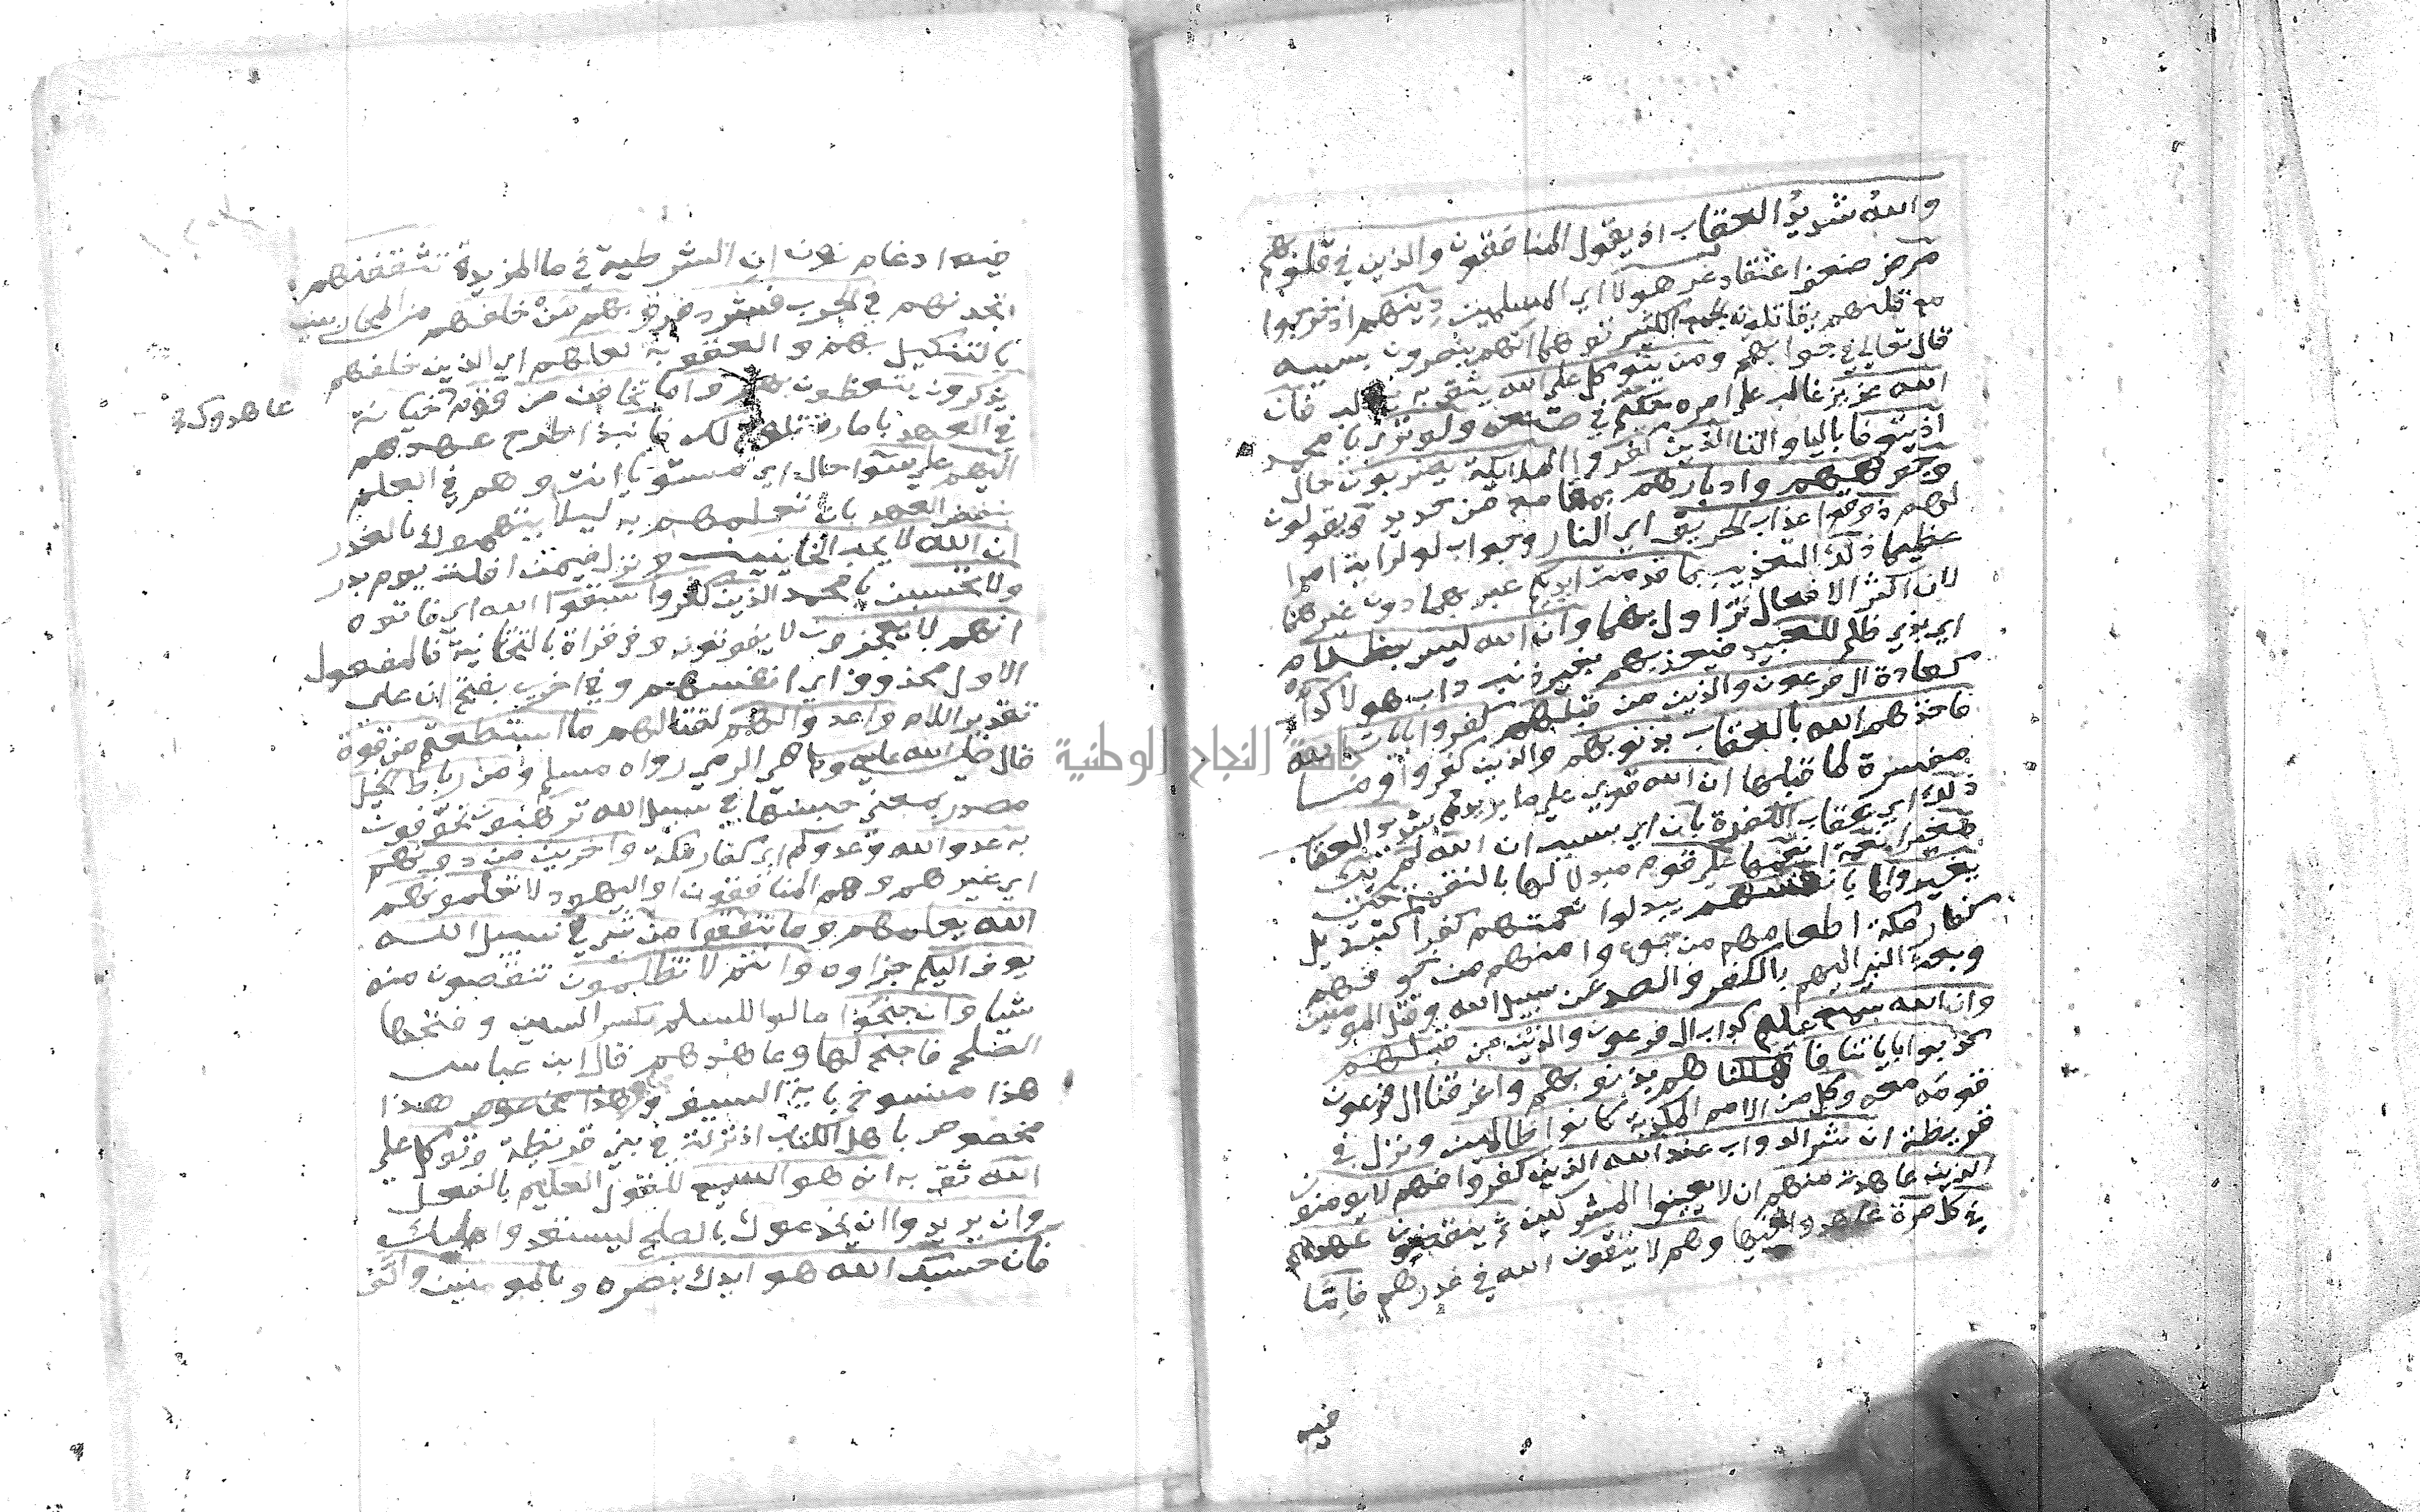 والله شديد العقاب اذ يقول المنافقون والذين في قلوبهم
مرض ضعف اعتقاد غر هولا اي المسلمين دينهم اذ خرجوا
مع قلتهم يقاتلون الجمع الكثير توهما انهم ينصرون بسببه
قال تعالى في جوابهم ومن يتوكل على الله يثق به يغلب فان
الله عزيز غالب على امره حكيم في صنعه ولو ترى يا محمد
اذ يتوفا باليا والتا الذين كفروا الملايكة يضربون حال
وجوههم وادبارهم بمقامع من حديد ويقولون
لهم ذوقوا عذاب الحريق اي النار وجواب لو لرايت امرا
عظيما ذلك التعذيب بما قدمت ايديكم عبر بها دون غيرها
لان اكثر الافعال تزاول بها وان الله ليس بظلام
اي بذي ظلم للعبيد فيعذبهم بغير ذنب داب هولا كدأب
كعادة ال فرعون والذين من قبلهم كفروا بايات الله
فاخذهم الله بالعقاب بذنوبهم والذين كفروا وما
مفسرة لما قبلها ان الله قوي على ما يريده شديد العقاب
ذلك اي عقاب الكفرة بان اي بسبب ان الله لم يك
مغيرا نعمة انعمها على قوم مبدلا لها بالنقمة حتى
يغيروا ما بانفسهم يبدلوا نعمتهم كفرا كتبديل
كفار مكة اطعامهم من جوع وامنهم من خوفهم
وبعث النبي اليهم بالكفر والصد عن سبيل الله وقتل المومنين
وان الله سميع عليم كداب ال فرعون والذين من قبلهم
كذبوا بايات ربهم فاهلكناهم بذنوبهم واغرقنا ال فرعون
قومه معه وكل من الامم المكذبة كانوا ظالمين ونزل في
قريظة ان شر الدواب عند الله الذين كفروا فهم لا يومنون
الذين عاهدت منهم ان لا يعينوا المشركين ثم ينقضون عهدهم
في كل مرة عاهدوا فيها وهم لا يتقون الله في غدرهم فاما
فيه
فيه ادغام نون ان الشرطية في ما المزيدة تثقفنهم
تجدنهم في الحرب فشرد فرق بهم من خلفهم من المحاربين
بالتنكيل بهم والعقوبة لعلهم اي الذين خلفهم
يذكرون يتعظون بهم واما تخافن من قوم خيانة
عاهدوك
في العهد بامارة تلوح لك فانبذ اطرح عهدهم
اليهم على سوا حال اي مستويا انت وهم في العلم
بنقض العهد بان تعلمهم به ليلا يتهموك بالغدر
ان الله لا يحب الخاينين ونزل فيمن افلت يوم بدر
ولا تحسبن يا محمد الذين كفروا سبقوا الله اي فاتوه
انهم لا يعجزون لا يفوتونه وفي قراة بالتحتانية فالمفعول
الاول محذوف اي انفسهم وفي اخرى بفتح ان على
تقدير اللام واعدوا لهم لقتالهم ما استطعتم من قوة
قال صلى الله عليه وسلم هي الرمي رواه مسلم ومن رباط الخيل
مصدر بمعنى حبسها في سبيل الله ترهبون تخوفون
به عدو الله وعدوكم اي كفار مكة واخرين من دونهم
اي غيرهم وهم المنافقون او اليهود لا تعلمونهم
الله يعلمهم وما تنفقوا من شي في سبيل الله
يوف اليكم جزاوه وانتم لا تظلمون تنقصون منه
شيا وان جنحوا مالوا للسلم بكسر السين وفتحها
الصلح فاجنح لها وعاهدهم قال ابن عباس
هذا منسوخ باية السيف وهذا
مخصوص باهل الكتاب اذ نزلت في بني قريظة وتوكل على
الله ثق به انه هو السميع للقول العليم بالفعل
وان يريدوا ان يخدعوك بالصلح ليستعدوا لك
فان حسبك الله هو ايدك بنصره وبالمومنين والف
جامعة النجاح الوطنية